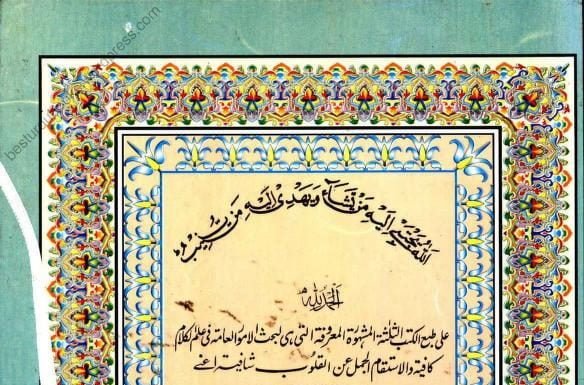 besturdubooks.wordpress.com
اللّٰهُ يَجْتَبِىْ اِلَيْهِ مَنْ يَّشَآءُ وَيَهْدِىْ اِلَيْهِ مَنْ يُّنِيْبُ
الحمد للہ
على طبع الكتب الثلثة المشهورة المعروفة التى هى لبحث الامور العامة فى علم الكلام
كافية والاستقام الجهل عن القلوب شافية اعنى